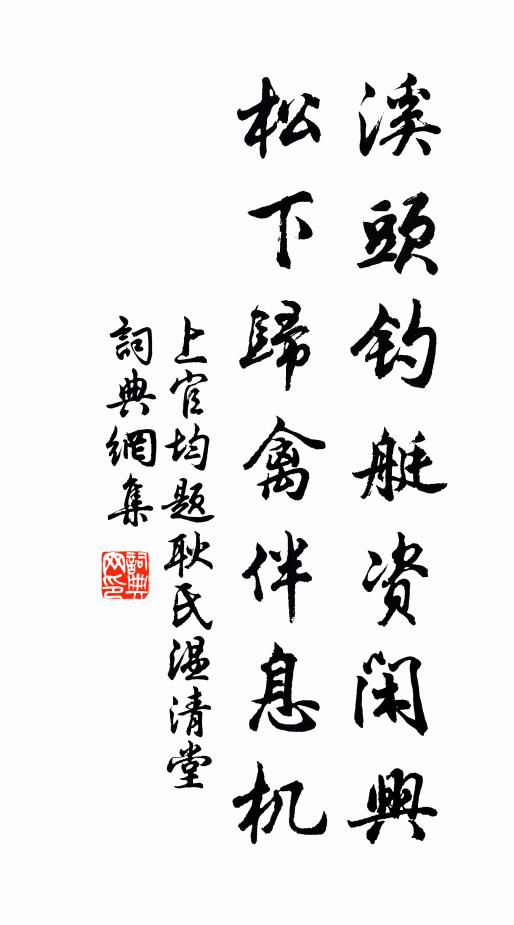 溪頭钓艇资闲興
松下歸禽伴息机
上官均题耿氏温清堂
詞典網集
詞典网印